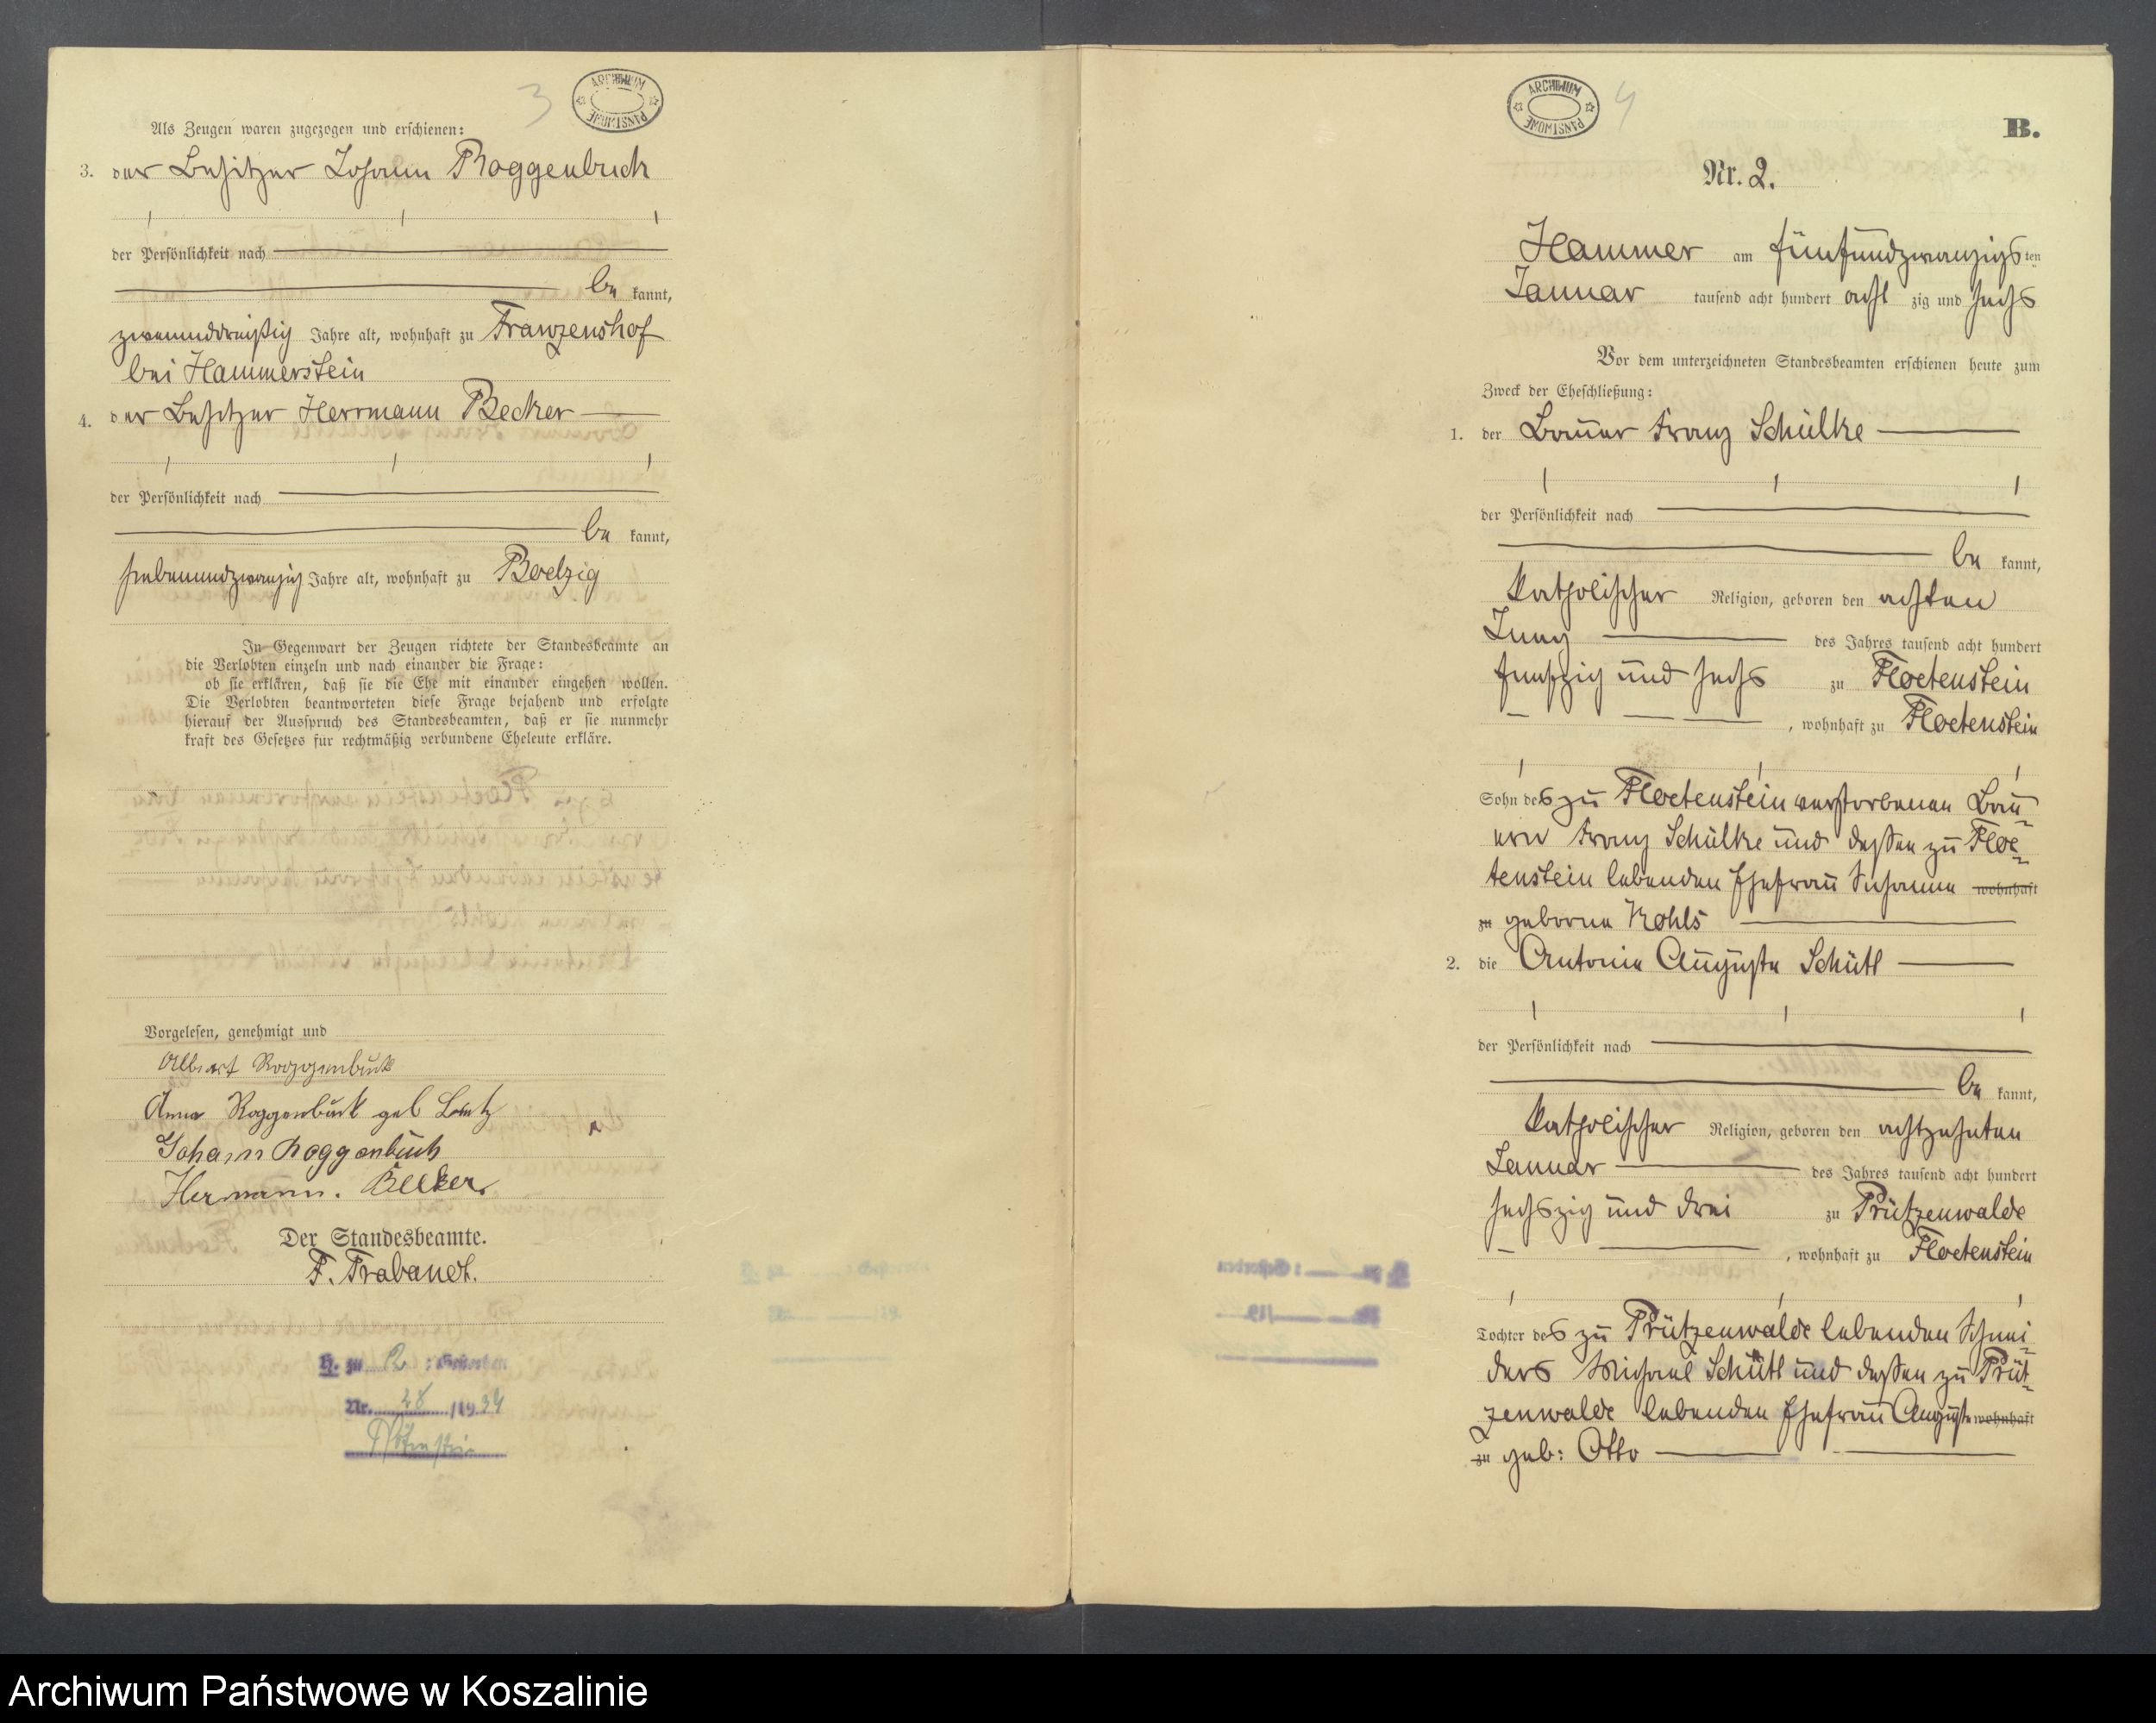 3
ARCHIWUM PAŃSTWOWE
Als Zeugen waren zugezogen und erschienen:
3. der Besitzer Johann Roggenbuck
der Persönlichkeit nach
be kannt,
zweiunddreißig Jahre alt, wohnhaft zu Franzenshof
bei Hammerstein
4. der Besitzer Herrmann Becker
der Persönlichkeit nach
be kannt,
siebenundzwanzig Jahre alt, wohnhaft zu Boelzig
In Gegenwart der Zeugen richtete der Standesbeamte an
die Verlobten einzeln und nach einander die Frage:
ob sie erklären, daß sie die Ehe mit einander eingehen wollen.
Die Verlobten beantworteten diese Frage bejahend und erfolgte
hierauf der Ausspruch des Standesbeamten, daß er sie nunmehr
kraft des Gesetzes für rechtmäßig verbundene Eheleute erkläre.
Vorgelesen, genehmigt und
Albert Roggenbuck
Anna Roggenbuck geb
Johann Roggenbuck
Hermann. Becker.
Der Standesbeamte.
F. Trabandt.
H. zu 2 : Gestorben
Nr. 28 /1934
Flötenstein
ARCHIWUM PAŃSTWOWE
4
B.
Nr. 2.
Hammer am fünfundzwanzigsten
Januar tausend acht hundert acht zig und sechs
Vor dem unterzeichneten Standesbeamten erschienen heute zum
Zweck der Eheschließung:
1. der Bauer Franz Schülke
der Persönlichkeit nach
be kannt,
katholischer Religion, geboren den achten
Juny des Jahres tausend acht hundert
funfzig und sechs zu Floetenstein
, wohnhaft zu Floetenstein
Sohn des zu Floetenstein verstorbenen Bau-
ern Franz Schülke und dessen zu Floe-
tenstein lebenden Ehefrau Susanna wohnhaft
zu geborne Kohls
2. die Antonie Auguste Schütt
der Persönlichkeit nach
be kannt,
katholischer Religion, geboren den achtzehnten
Januar des Jahres tausend acht hundert
sechszig und drei zu Prützenwalde
, wohnhaft zu Floetenstein
Tochter des zu Prützenwalde lebenden Schnei-
ders Michael Schütt und dessen zu Prüt-
zenwalde lebenden Ehefrau Auguste wohnhaft
zu geb: Otto
Archiwum Państwowe w Koszalinie